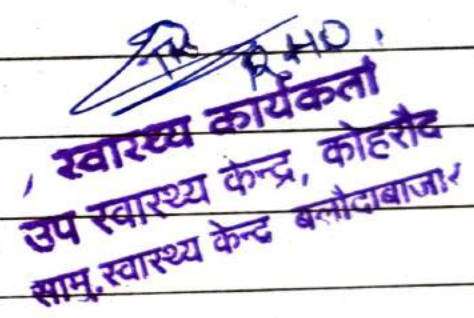 RHO.
स्वास्थ्य कार्यकर्ता
उप स्वास्थ्य केन्द्र, कोहरौद
सामु. स्वास्थ्य केन्द्र बलौदाबाजार